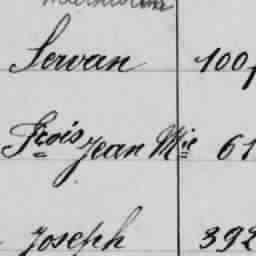 Servan 100
Frois Jean Mie 61
Joseph 392